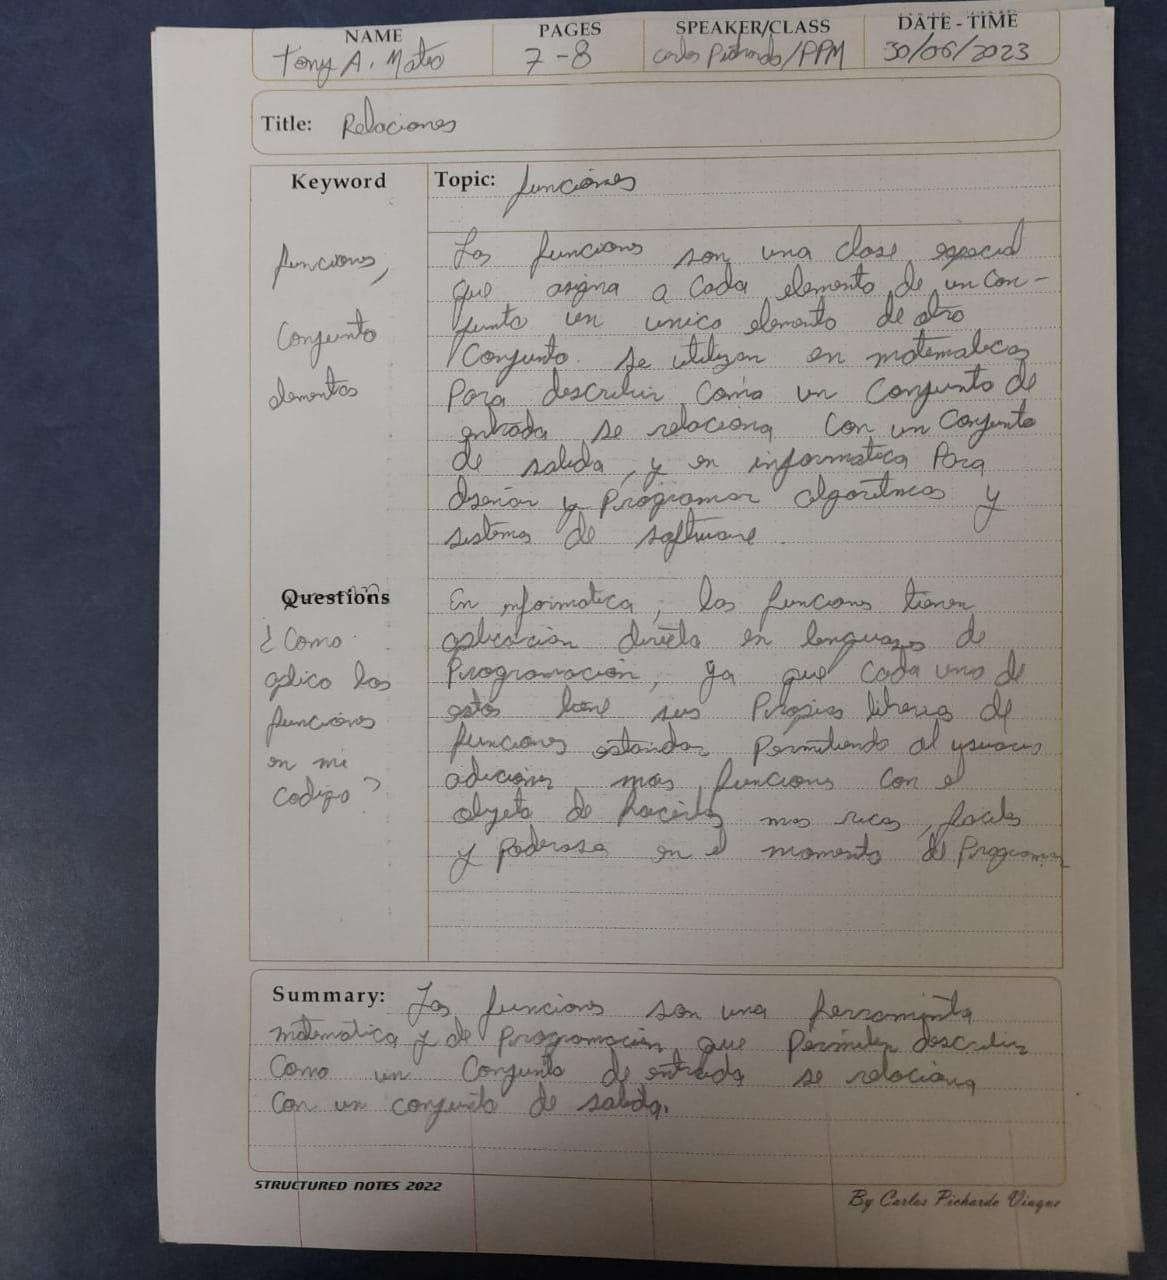 NAME PAGES SPEAKER/CLASS DATE - TIME
Tony A. Mateo 7-8 Carlos Pichardo/PPM 30/06/2023
Title: Relaciones
Keyword
Topic: funciones
funciones,
Conjunto
elementos
Las funciones son una clase especial
que asigna a cada elemento de un con-
junto un unico elemento de otro
Conjunto. Se utilizan en matematicas
Para describir como un conjunto de
entrada se relaciona con un conjunto
de salida, y en informatica Para
diseñar y Programar algoritmos y
sistemas de software.
Questions
¿Como
aplico las
funciones
en mi
codigo?
En informatica, las funciones tienen
aplicación directa en lenguajes de
Programación, ya que cada uno de
estos tiene sus Propias librerias de
funciones estandar Permitiendo al usuario
adicionar mas funciones con el
objeto de hacerlas mas ricas, faciles
y Poderosa en el momento de Programar
Summary: Las funciones son una herramienta
matemática y de Programación que Permiten describir
Como un Conjunto de entrada se relaciona
Con un conjunto de salida.
STRUCTURED NOTES 2022
By Carlos Pichardo Viuque